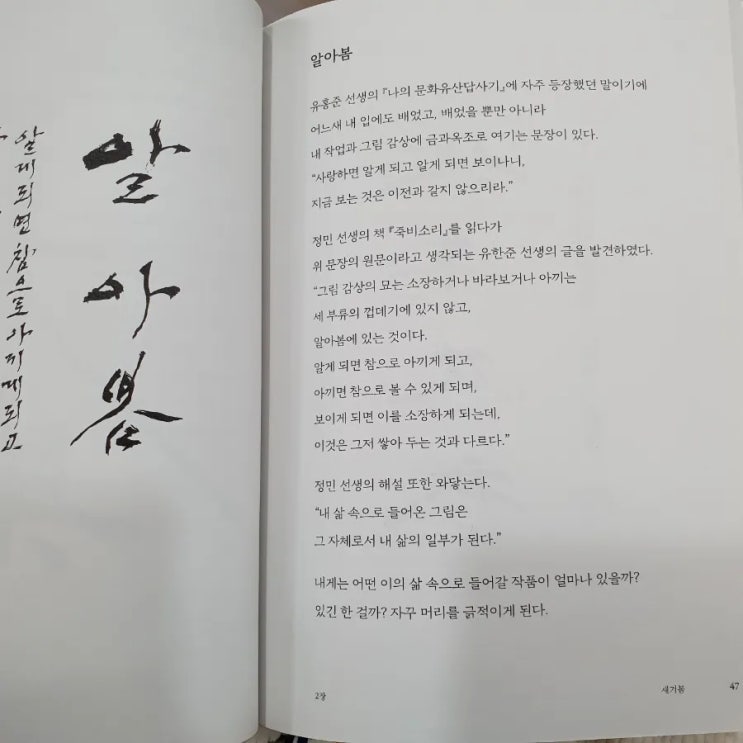 알
아
봄
알게 되면 참으로 아끼게 되고
알아봄
유홍준 선생의 『나의 문화유산답사기』에 자주 등장했던 말이기에
어느새 내 입에도 배었고, 배었을 뿐만 아니라
내 작업과 그림 감상에 금과옥조로 여기는 문장이 있다.
“사랑하면 알게 되고 알게 되면 보이나니,
지금 보는 것은 이전과 같지 않으리라.”
정민 선생의 책 『죽비소리』를 읽다가
위 문장의 원문이라고 생각되는 유한준 선생의 글을 발견하였다.
“그림 감상의 묘는 소장하거나 바라보거나 아끼는
세 부류의 껍데기에 있지 않고,
알아봄에 있는 것이다.
알게 되면 참으로 아끼게 되고,
아끼면 참으로 볼 수 있게 되며,
보이게 되면 이를 소장하게 되는데,
이것은 그저 쌓아 두는 것과 다르다.”
정민 선생의 해설 또한 와닿는다.
“내 삶 속으로 들어온 그림은
그 자체로서 내 삶의 일부가 된다.”
내게는 어떤 이의 삶 속으로 들어갈 작품이 얼마나 있을까?
있긴 한 걸까? 자꾸 머리를 긁적이게 된다.
2장
새겨봄
47